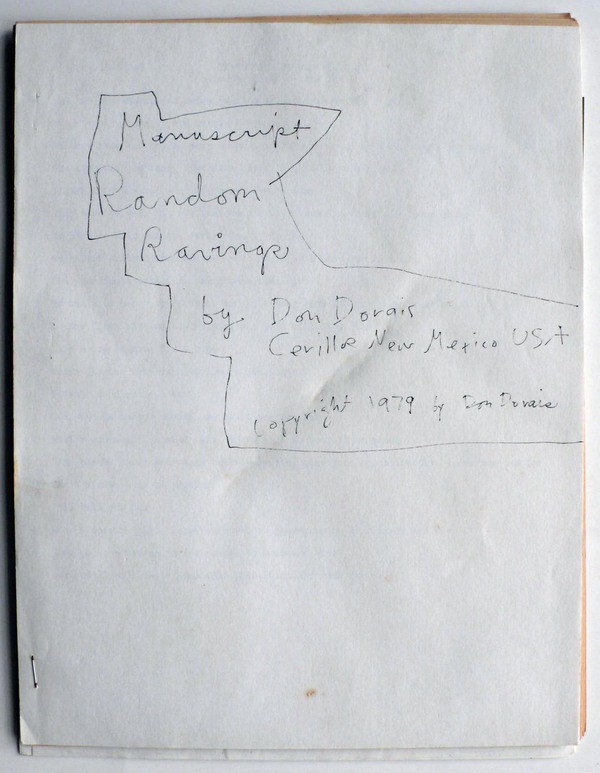 Manuscript
Random
Ravings
by Don Dorais
Cerillos New Mexico USA
Copyright 1979 by Don Dorais